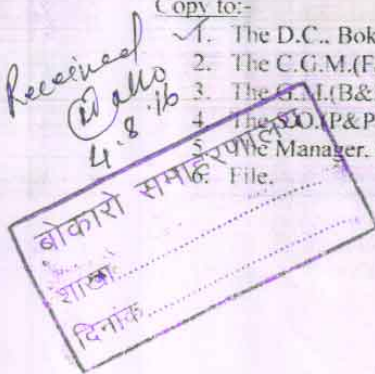 Copy to:-
1. The D.C., Bok
2. The C.G.M.(F
3. The G.M.(B&
4. The S.O.(P&P
5. The Manager.
6. File.
Received
4.8.16
बोकारो समाहरणालय
शाखा
दिनांक